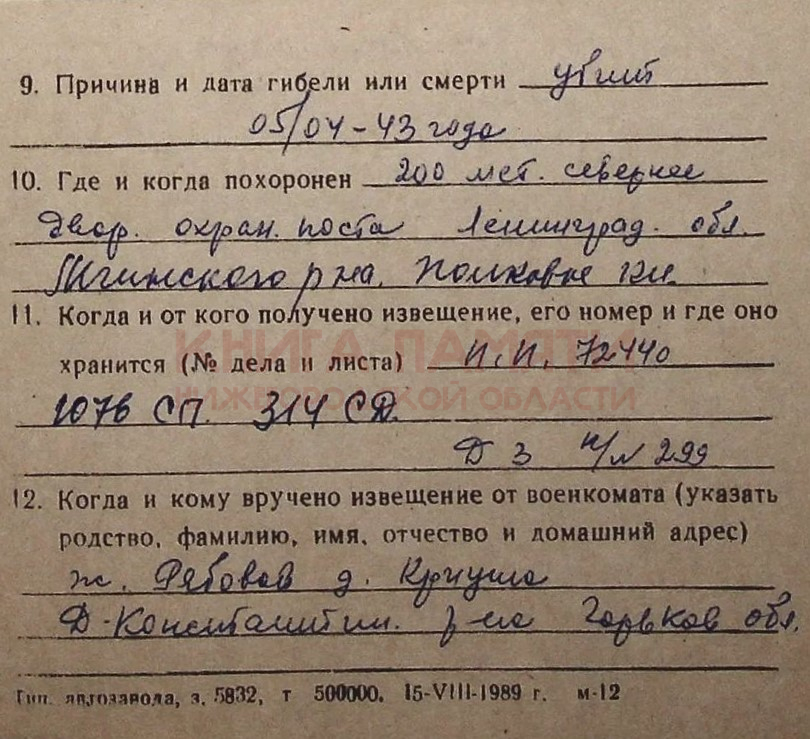 9. Причина и дата гибели или смерти убит
05/04-43 года
10. Где и когда похоронен 200 мет. севернее
двор. охран. поста Ленинград. обл.
Мгинского р на.
11. Когда и от кого получено извещение, его номер и где оно
хранится (№ дела и листа) п.п. 72440
КНИГА ПАМЯТИ
НИЖЕГОРОДСКОЙ ОБЛАСТИ
1076 СП. 314 СД.
Д 3 299
12. Когда и кому вручено извещение от военкомата (указать
родство, фамилию, имя, отчество и домашний адрес)
ж. Рябова д. Криуша
Д-Константин. р-на Горьков обл.
Тип. автозавода, з. 5832, т 500000, 15-VIII-1989 г. м-12